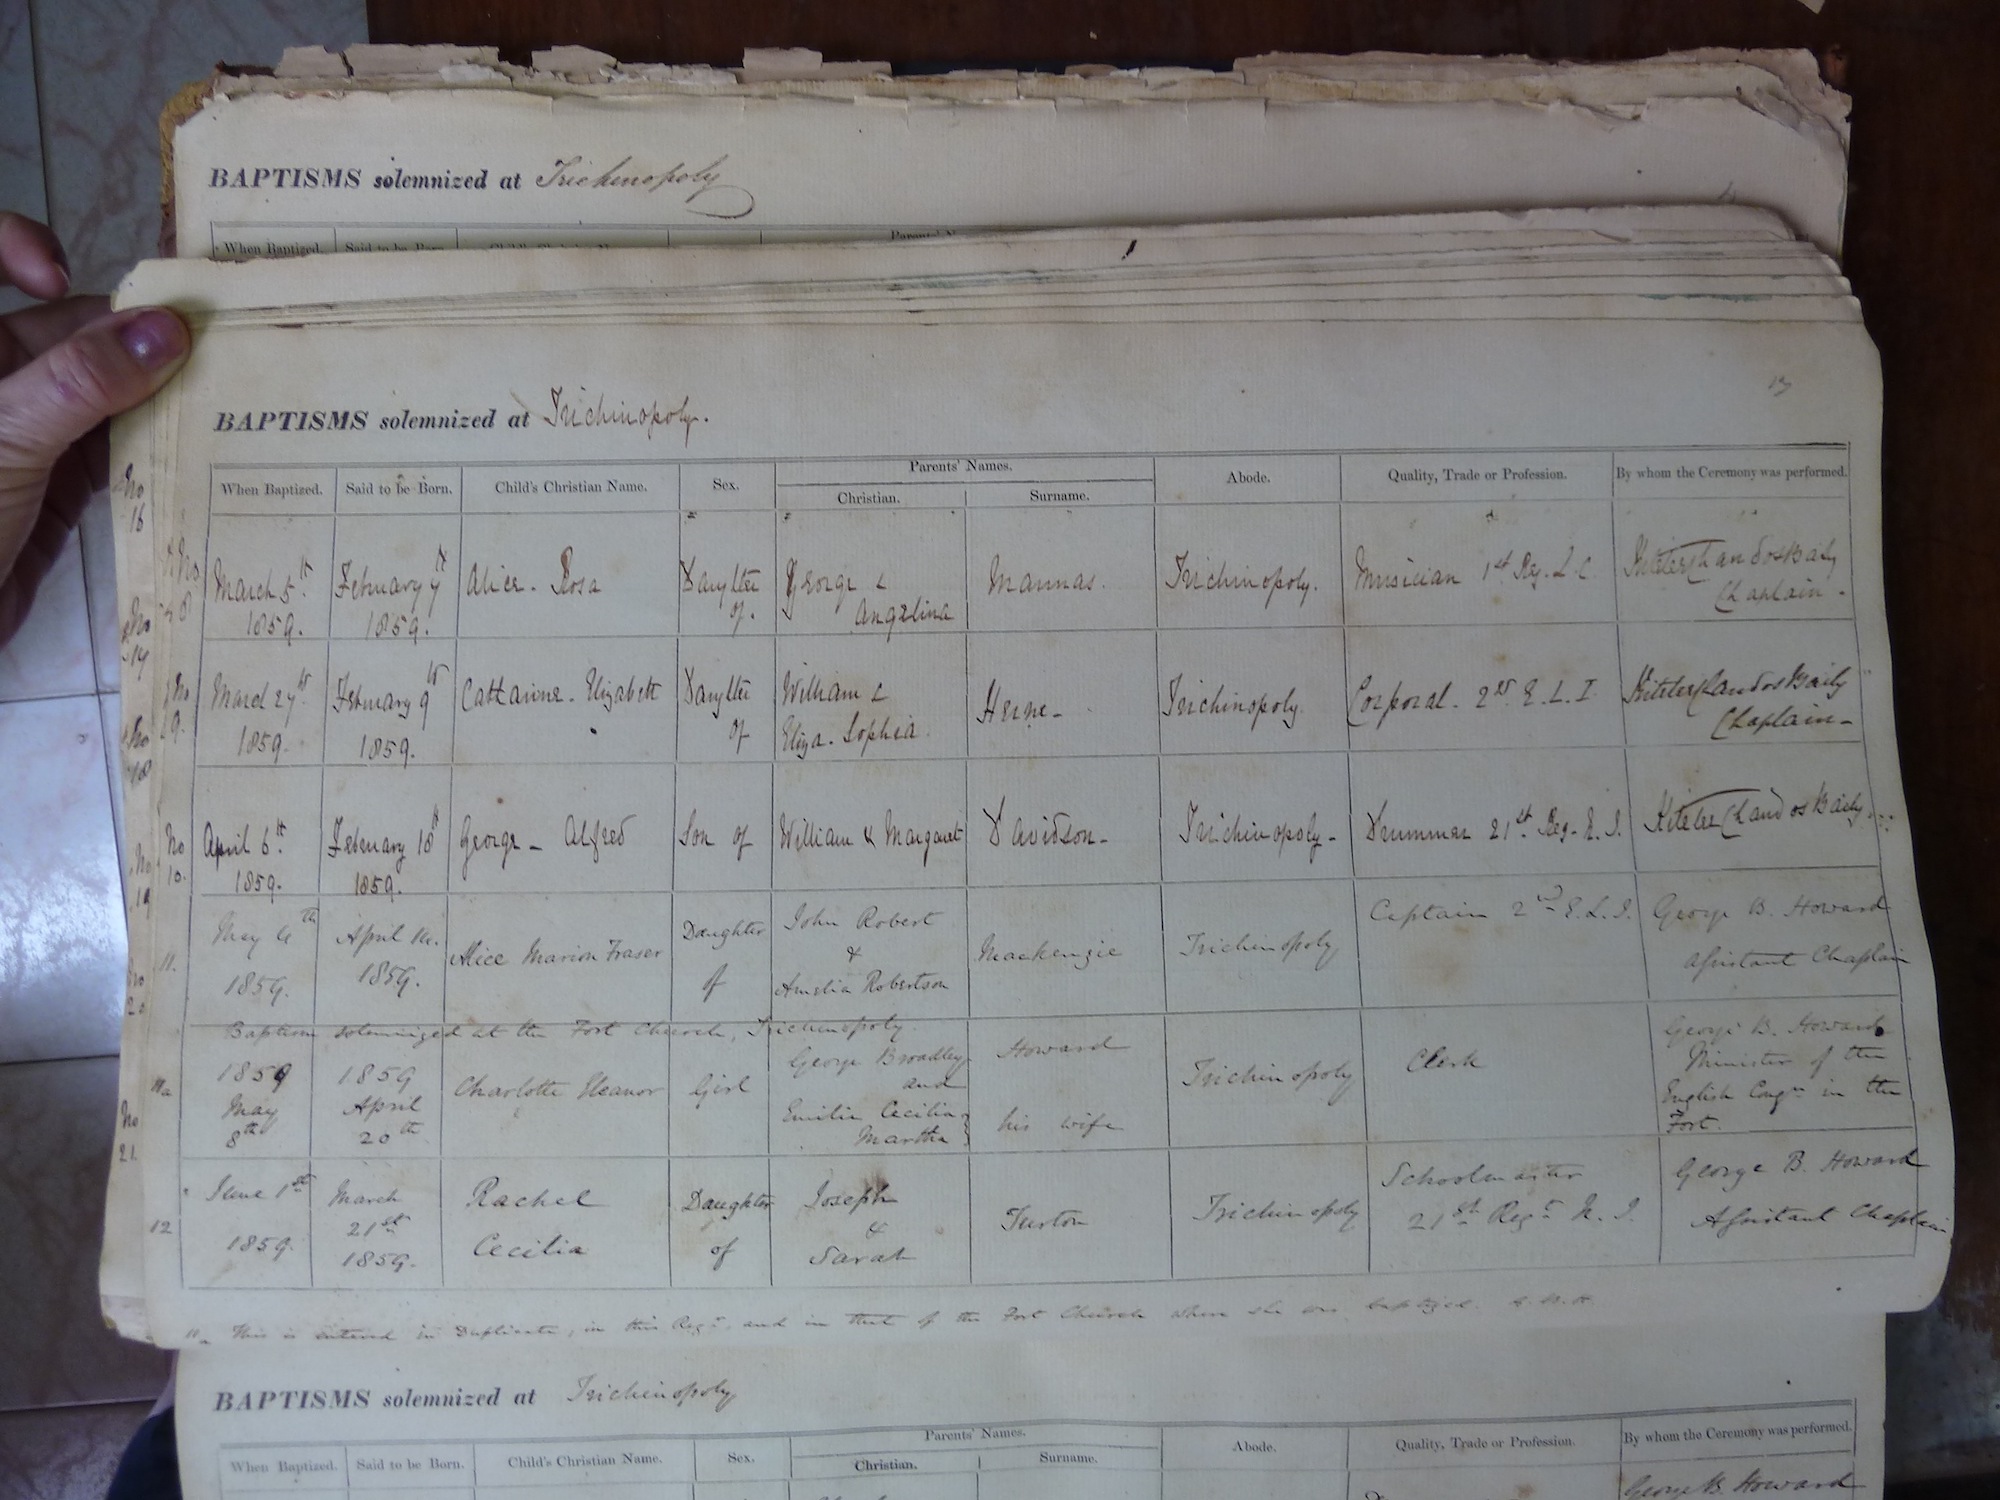 BAPTISMS solemnized at Trichinopoly
When Baptized. Said to be Born. Child's Christian N Parents' N
13
BAPTISMS solemnized at Trichinopoly.
When Baptized. Said to be Born. Child's Christian Name. Sex. Parents' Names. Abode. Quality, Trade or Profession. By whom the Ceremony was performed.
Christian. Surname.
No 16
No 8 March 5th 1859. February 7th 1859. Alice - Rosa Daughter of. George & Angelina Mannas. Trichinopoly. Musician 1st Reg. L.C. Chaplain.
No 9. March 27th 1859. February 9th 1859. Catharine - Elizabeth Daughter of William & Eliza - Sophia Herne - Trichinopoly. Corporal. 2nd E.L.I. Chaplain -
No 10. April 6th 1859. February 18th 1859. George - Alfred Son of William & Margaret Davidson - Trichinopoly - Drummer 21st Reg. N.I.
No 19
11. May 4th 1859. April 14. 1859. Alice Marion Fraser Daughter of John Robert & Amelia Robertson Mackenzie Trichinopoly Captain 2nd E.L.I. George B. Howard Assistant Chaplain
No 20
Baptism solemnized at the Fort Church, Trichinopoly
11a 1859 May 8th 1859 April 20th Charlotte Eleanor Girl George Broadley and Emilia Cecilia Martha } Howard his wife Trichinopoly Clerk George B. Howard Minister of the English Congn in the Fort.
No 21.
12 June 1st 1859. March 21st 1859. Rachel Cecilia Daughter of Joseph & Sarah Turton Trichinopoly Schoolmaster 21st Regt N.I. George B. Howard Assistant Chaplain
11a This is entered in Duplicate, in this Regr. and in that of the Fort Church where she was baptized. G.B.H.
BAPTISMS solemnized at Trichinopoly
When Baptized. Said to be Born. Child's Christian Name. Sex. Parents' Names. Abode. Quality, Trade or Profession. By whom the Ceremony was performed.
Christian. Surname.
George B. Howard